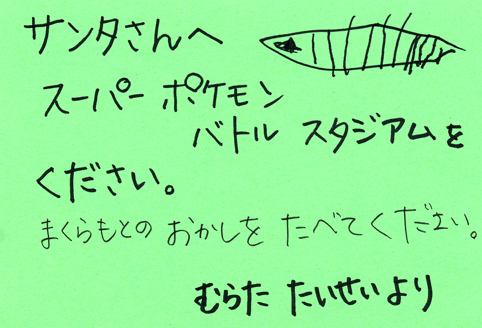 サンタさんへ
スーパー ポケモン
バトル スタジアムを
ください。
まくらもとの おかしを たべてください。
むらた たいせいより